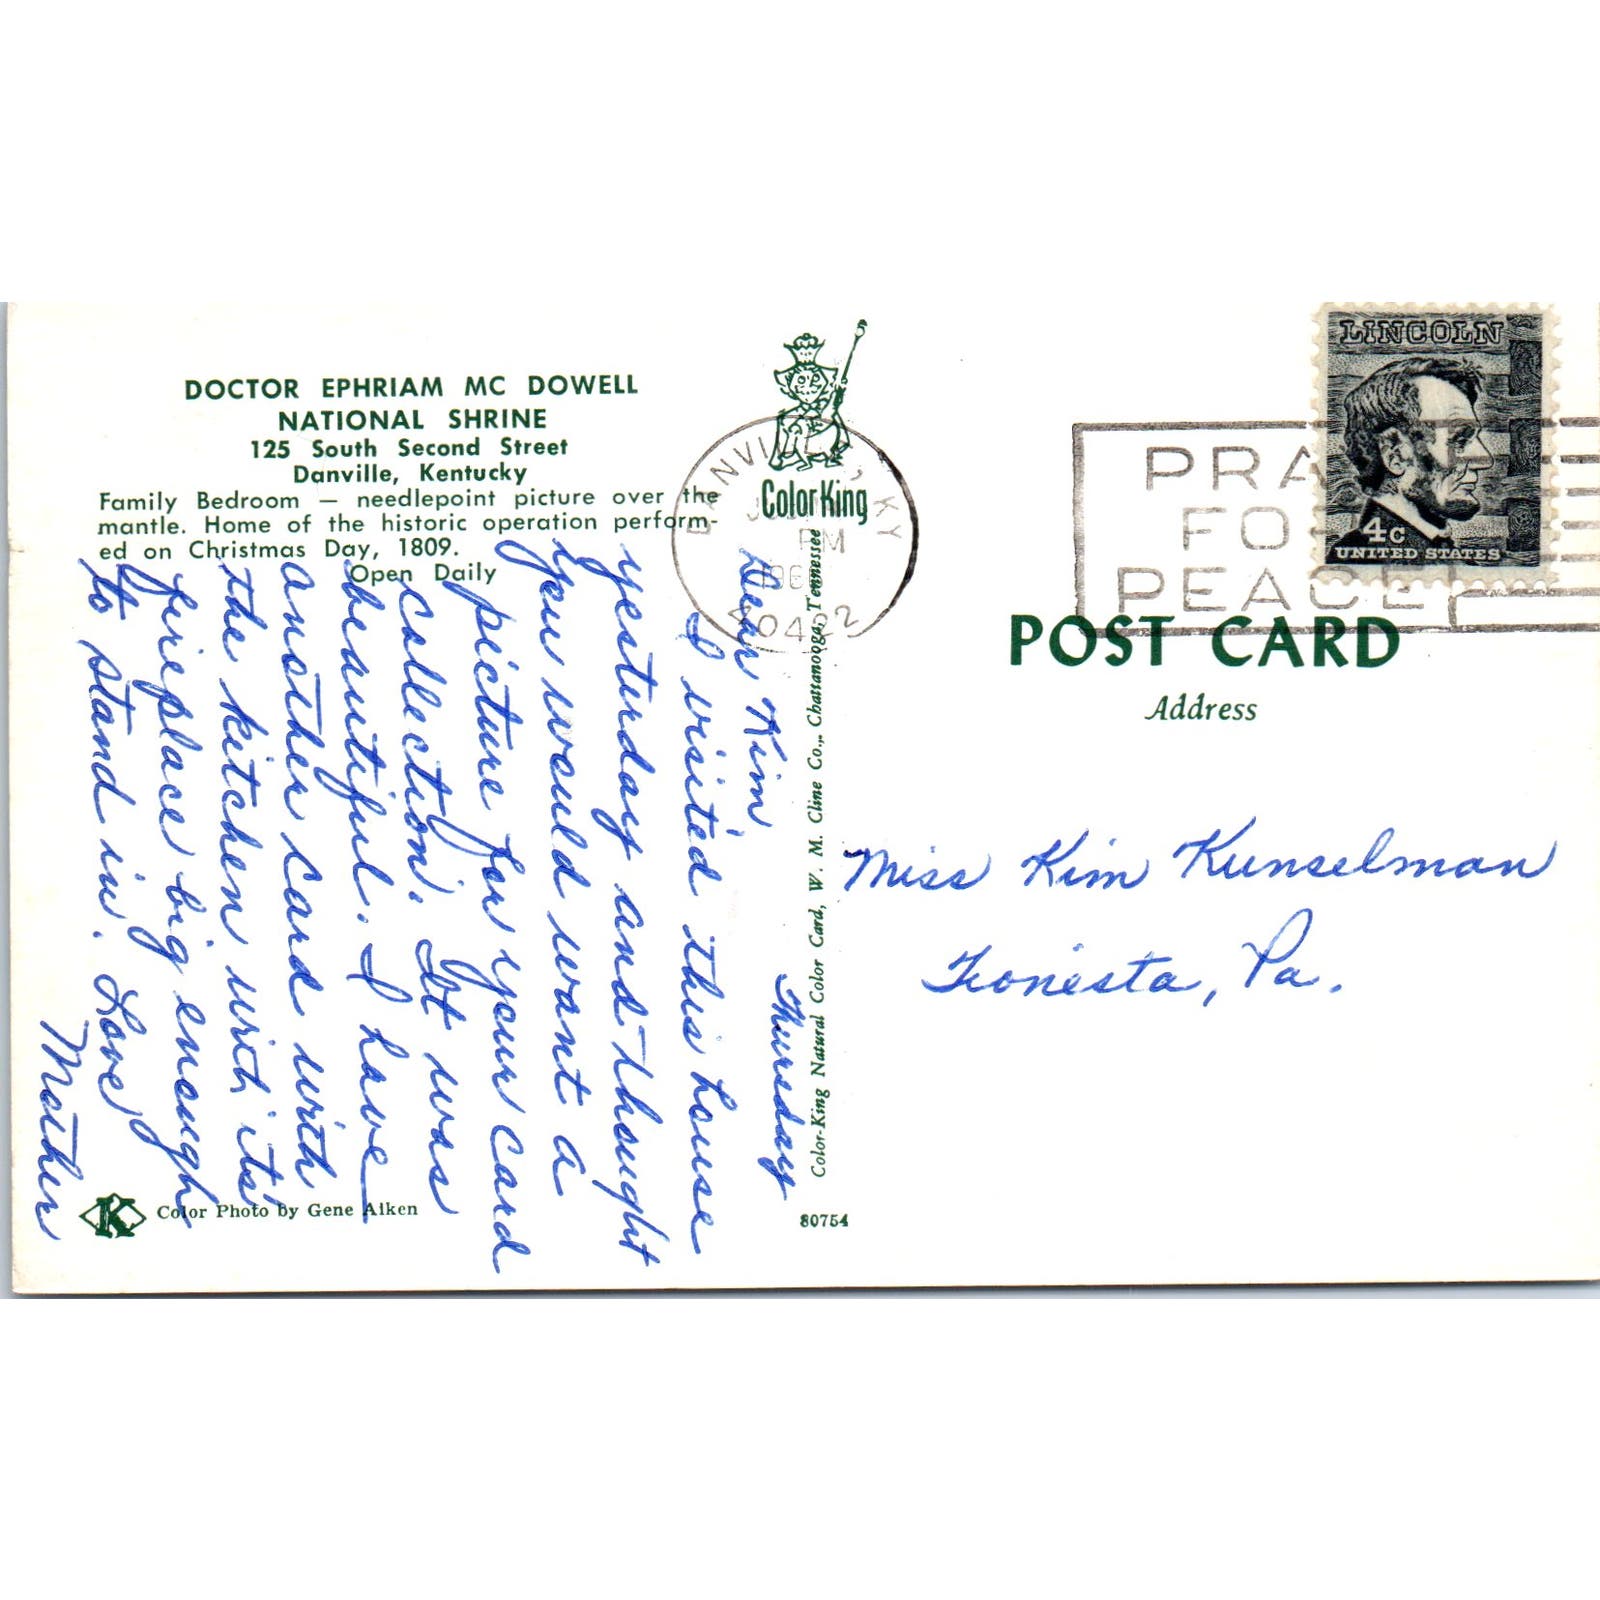 DOCTOR EPHRIAM MC DOWELL
NATIONAL SHRINE
125 South Second Street
Danville, Kentucky
Family Bedroom — needlepoint picture over the
mantle. Home of the historic operation perform-
ed on Christmas Day, 1809.
Open Daily
Thursday
Dear Kim,
I visited this house
yesterday and thought
you would want a
picture for your card
collection. It was
beautiful. I have
another card with
the kitchen with it's
fireplace big enough
to stand in. Love,
Mother
K Color Photo by Gene Aiken
Color King
Color-King Natural Color Card, W. M. Cline Co., Chattanooga, Tennessee
80754
DANVILLE, KY
PM
40422
PRAY
FOR
PEACE
LINCOLN
4c
UNITED STATES
POST CARD
Address
Miss Kim Kunselman
Tionesta, Pa.